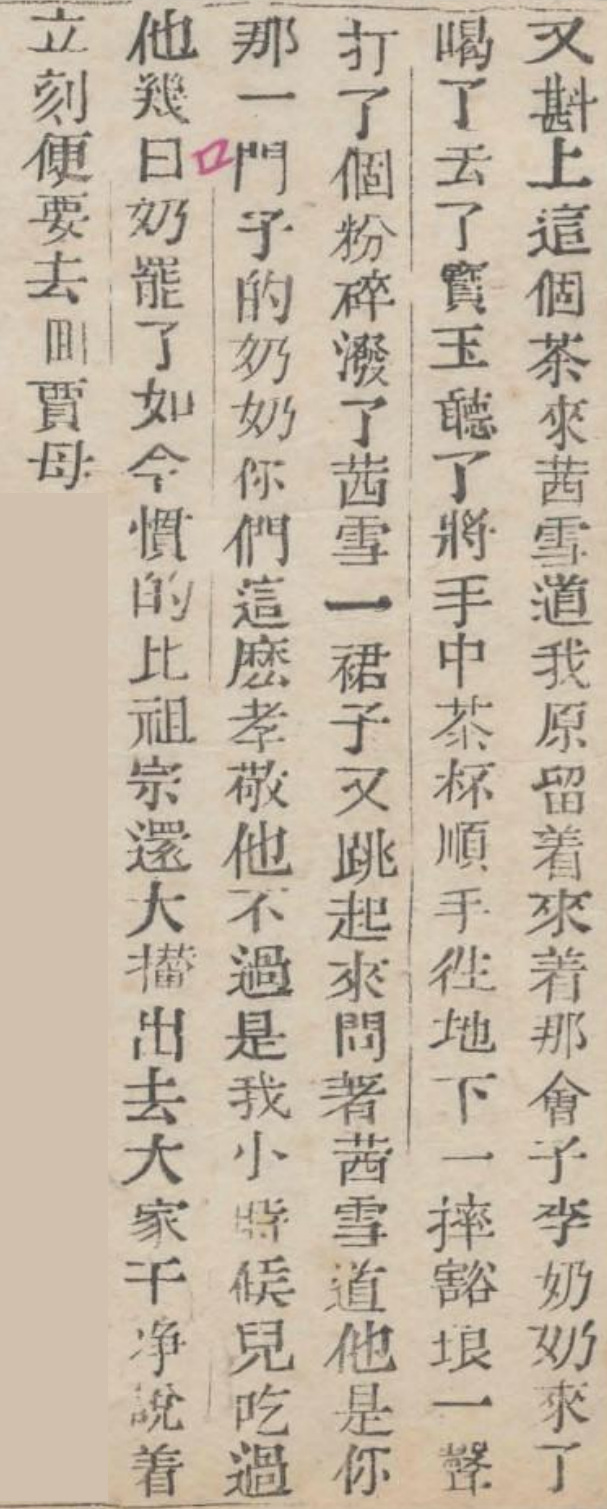 又斟上這個茶來茜雪道我原留着來着那會子李奶奶來了
喝了去了寶玉聽了將手中茶杯順手往地下一摔豁琅一聲
打了個粉碎潑了茜雪一裙子又跳起來問著茜雪道他是你
那一門子的奶奶你們這麽孝敬他不過是我小時候兒吃過
他幾日奶罷了如今慣的比祖宗還大攆出去大家干净說着
立刻便要去回賈母